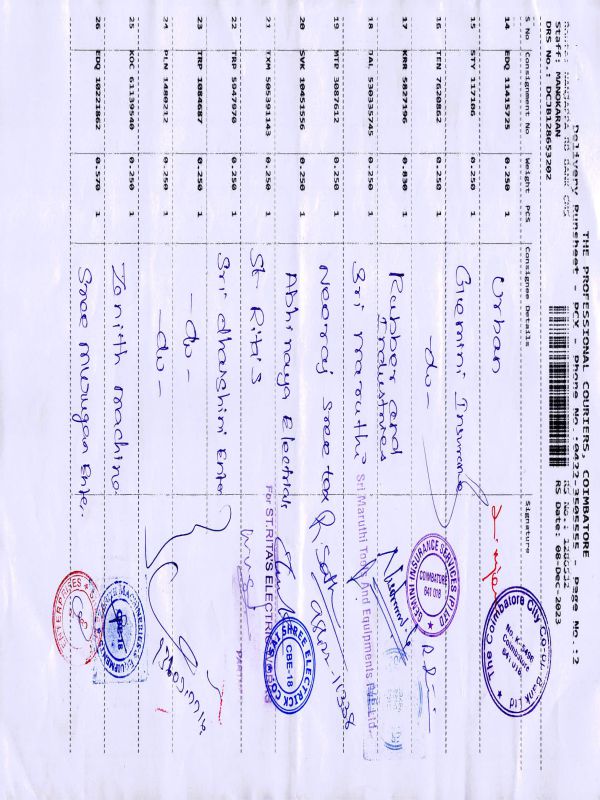 THE PROFESSIONAL COURIERS, COIMBATORE
Delivery Runsheet - PCX - Phone No.:0422-3505555 - Page No.:2
RS No.: 1286532
Staff: MANOKARAN
DRS No.: DCJB128653202 RS Date: 08-Dec 2023
S No Consignment No Weight PCS Consignee Details Signature
14 EDQ 11415725 0.250 1 Urban
15 STY 117106 0.250 1 Gemini Insurance
16 TEN 7620862 0.250 1 -do-
17 KRR 5827196 0.830 1 Rubber and Industries
18 JAL 530335745 0.250 1 Sri maruthi
19 MTP 3087612 0.250 1 Neeraj Sree tex
20 SVK 10451556 0.250 1 Abhinaya Electricals
21 TXM 505391143 0.250 1 St. Rita's
22 TRP 5047070 0.250 1 Sri dharshini Enter
23 TRP 1084687 0.250 1 -do-
24 PLN 1480212 0.250 1 -do-
25 KOC 61139540 0.250 1 Zenith machine
26 EDQ 10221862 0.570 1 Sree murugan Enter.
The Coimbatore City Co-op. Bank Ltd
No. K-3496
Coimbatore
641 018.
GEMINI INSURANCE SERVICES (P) LTD
COIMBATORE
641 018
Sri Maruthi Tools And Equipments Pvt Ltd
For ST.RITA'S ELECTRIC
SAI SHREE ELECTRICK CO
CBE-18
CBE-18
ENTERPRISES